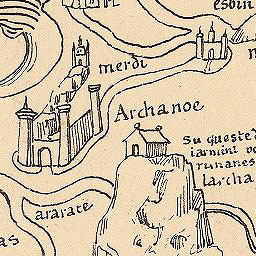 esbin
merdi
Archanoe
Su queste
iamini
runanes
larcha
ararate
as